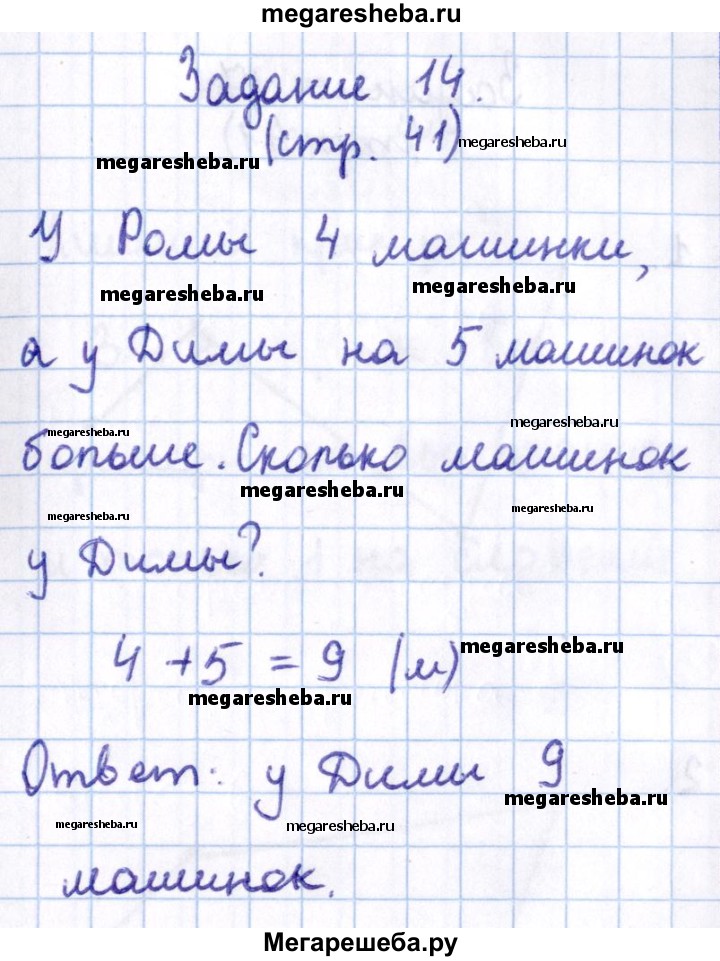 megaresheba.ru
Задание 14.
(стр. 41)
megaresheba.ru
megaresheba.ru
У Ромы 4 машинки,
megaresheba.ru
megaresheba.ru
а у Димы на 5 машинок
megaresheba.ru
megaresheba.ru
больше. Сколько машинок
megaresheba.ru
megaresheba.ru
megaresheba.ru
у Димы?
4 + 5 = 9 (м)
megaresheba.ru
megaresheba.ru
Ответ: у Димы 9
megaresheba.ru
megaresheba.ru
megaresheba.ru
машинок.
Мегарешеба.ру